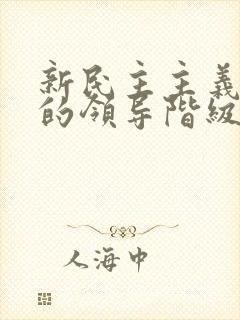 新民主主義
的領导階級
人海中